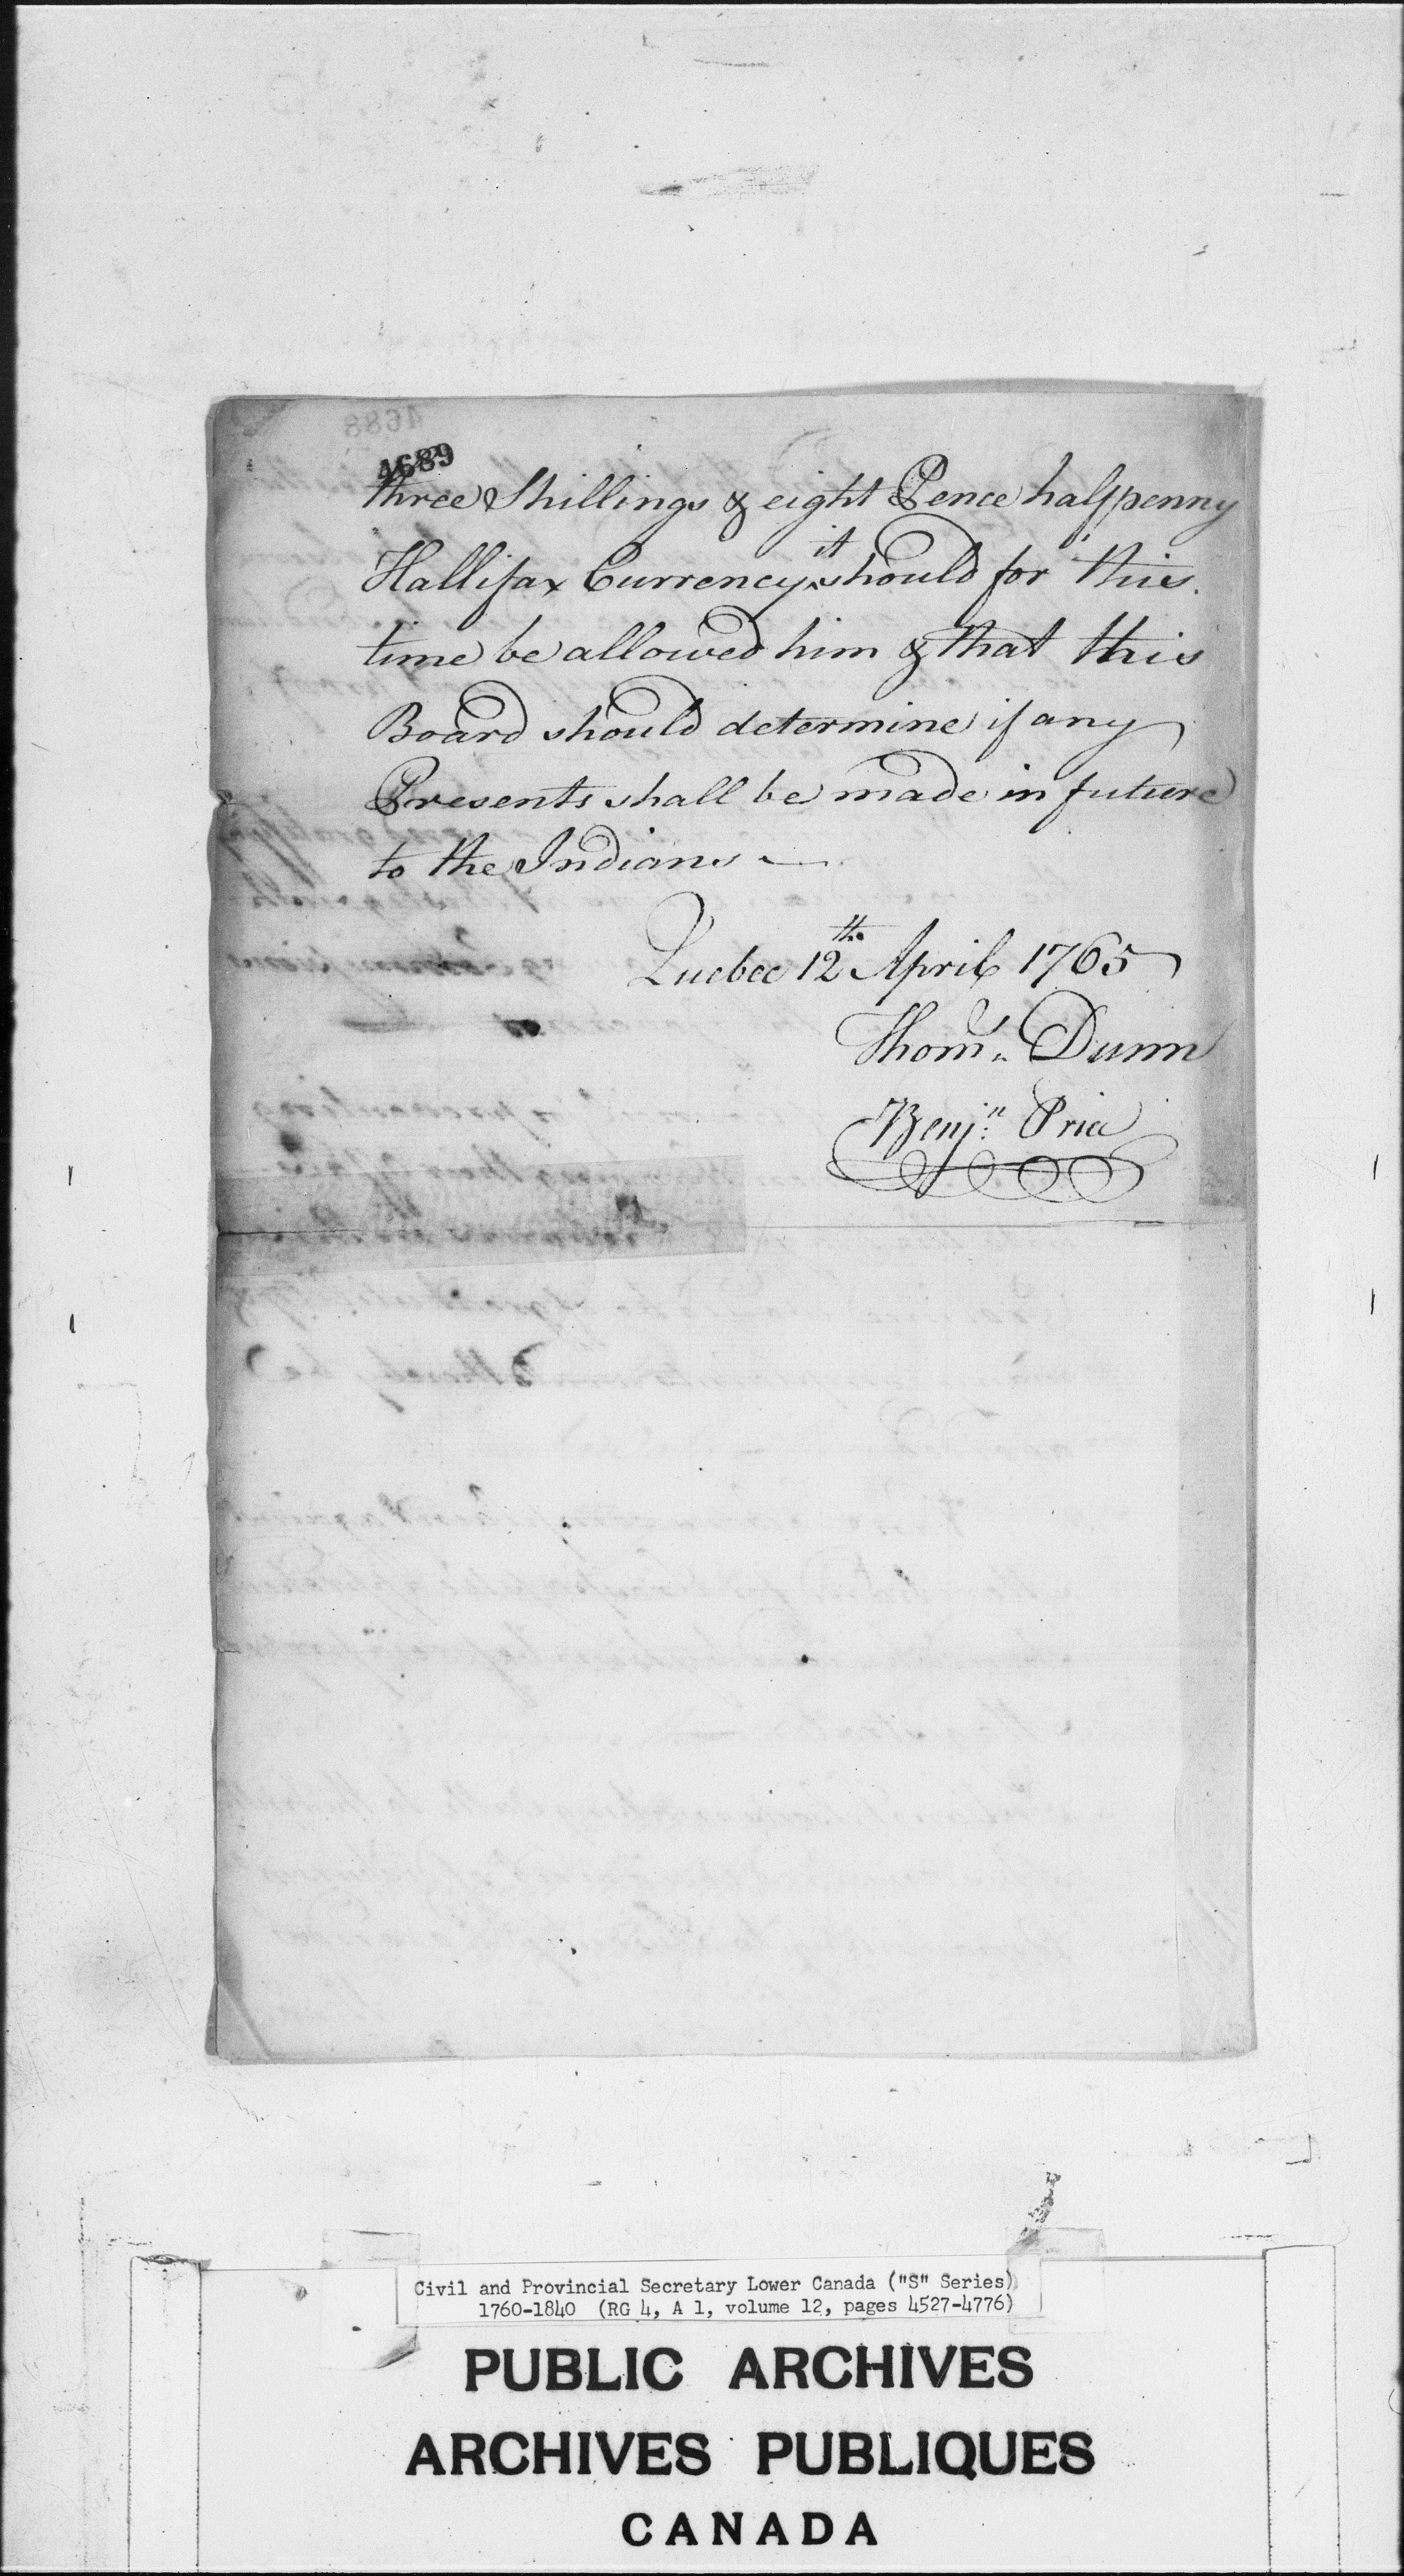 4689
three Shillings & eight Pence halfpenny
Hallifax Currency ^it should for this
time be allowed him & that this
Board should determine if any
Presents shall be made in future
to the Indians —
Quebec 12th April 1765
Thoms. Dunn
Benjn. Price
Civil and Provincial Secretary Lower Canada ("S" Series)
1760-1840 (RG 4, A 1, volume 12, pages 4527-4776)
PUBLIC ARCHIVES
ARCHIVES PUBLIQUES
CANADA